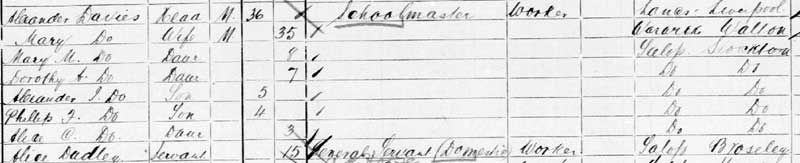 Alexander Davies Head M. 36 Schoolmaster Worker Lancs. Liverpool
Mary Do Wife M 35 Warwick Walton
Mary M. Do Daur 8 Salop Stockton
Dorothy A. Do Daur 7 Do Do
Alexander J. Do Son 5 Do Do
Philip F. Do Son 4 Do Do
Alice C. Do. Daur 3 Do Do
Alice Dudley Servant 15 General Servant (Domestic) Worker Salop Broseley